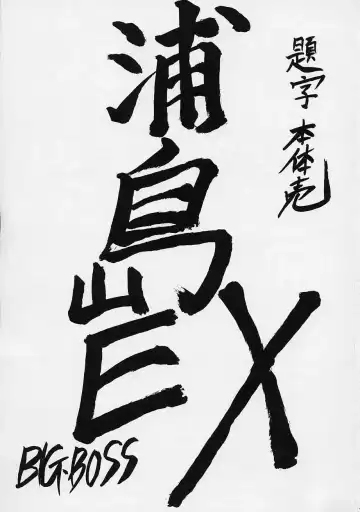 浦島EX
題字 本体売
BIG・BOSS